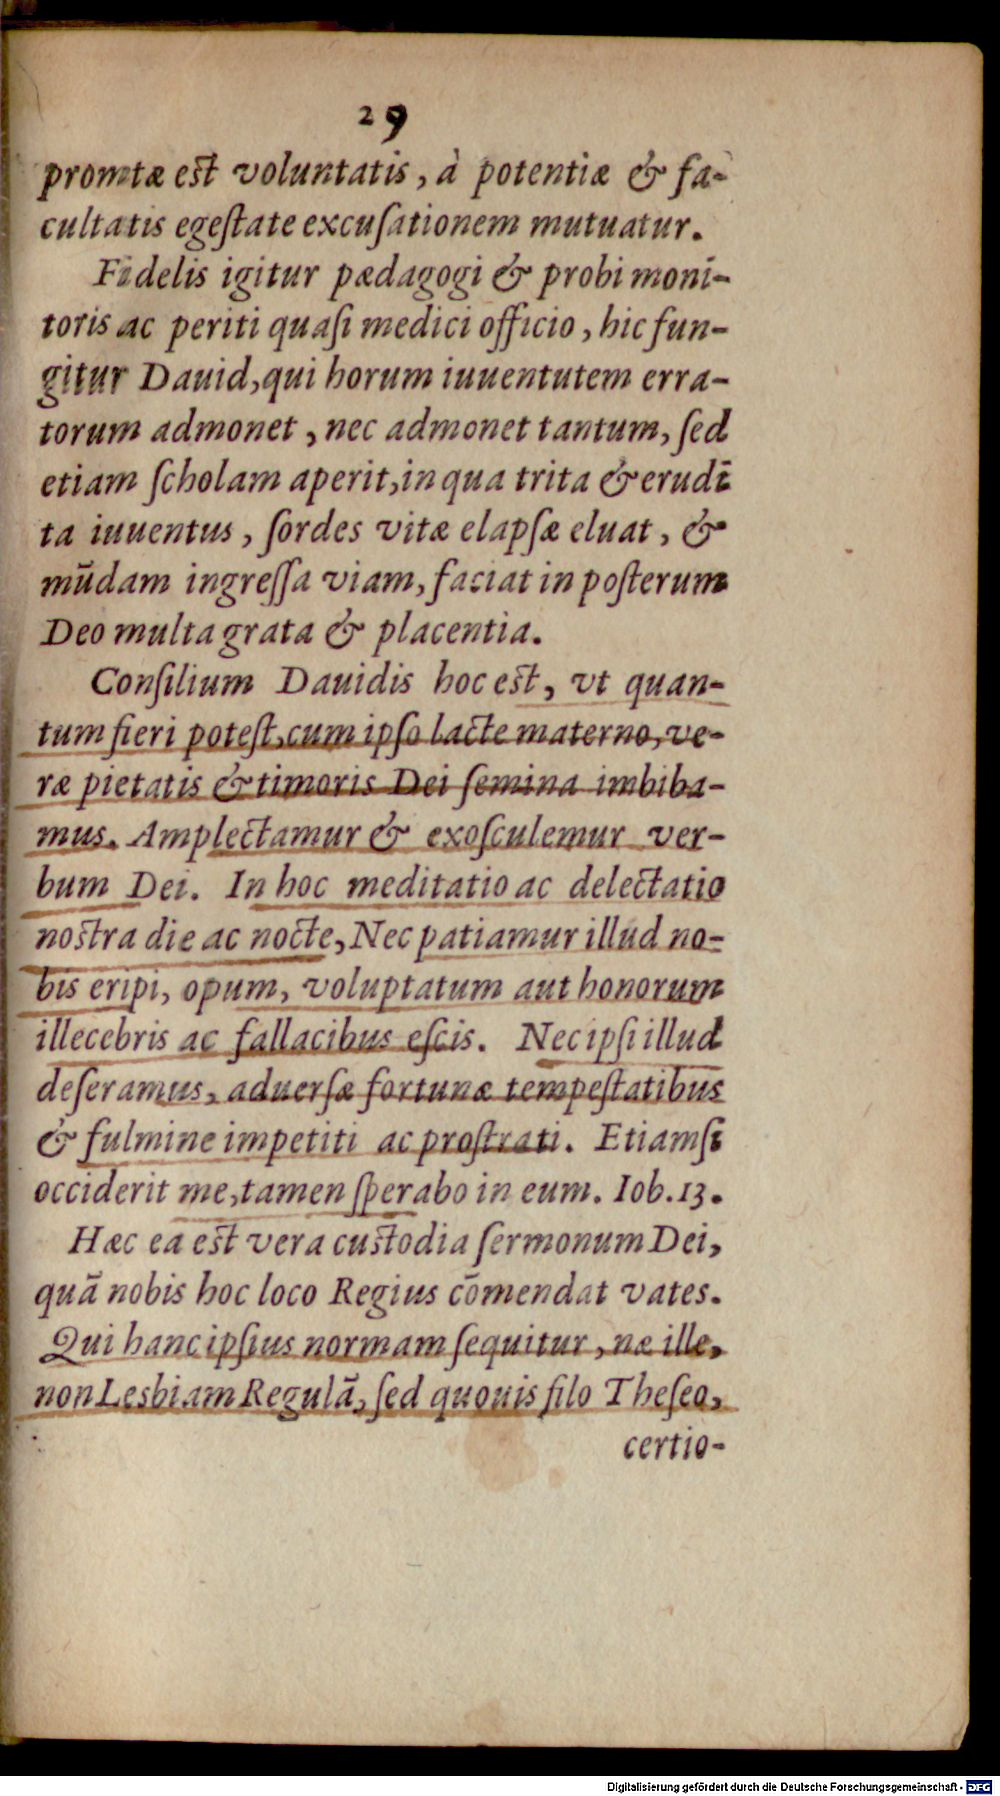 29
promtæ est voluntatis, à potentiæ & fa-
cultatis egeſtate excuſationem mutuatur.
Fidelis igitur pædagogi & probi moni-
toris ac periti quaſi medici officio, hic fun-
gitur Dauid, qui horum iuuentutem erra-
torum admonet, nec admonet tantum, ſed
etiam ſcholam aperit, in qua trita & erudi-
ta iuuentus, ſordes vitæ elapſæ eluat, &
mūdam ingreſſa viam, faciat in poſterum
Deo multa grata & placentia.
Conſilium Dauidis hoc est, vt quan-
tum fieri poteſt, cum ipſo lacte materno, ve-
ræ pietatis & timoris Dei ſemina imbiba-
mus. Amplectamur & exoſculemur ver-
bum Dei. In hoc meditatio ac delectatio
nostra die ac nocte, Nec patiamur illud no-
bis eripi, opum, voluptatum aut honorum
illecebris ac fallacibus eſcis. Nec ipſi illud
deſeramus, aduerſæ fortunæ tempeſtatibus
& fulmine impetiti ac proſtrati. Etiamſi
occiderit me, tamen ſperabo in eum. Iob. 13.
Hæc ea est vera custodia ſermonum Dei,
quā nobis hoc loco Regius cōmendat vates.
Qui hanc ipſius normam ſequitur, næ ille,
non Lesbiam Regulā, ſed quouis filo Theſeo,
certio-
Digitalisierung gefördert durch die Deutsche Forschungsgemeinschaft - DFG